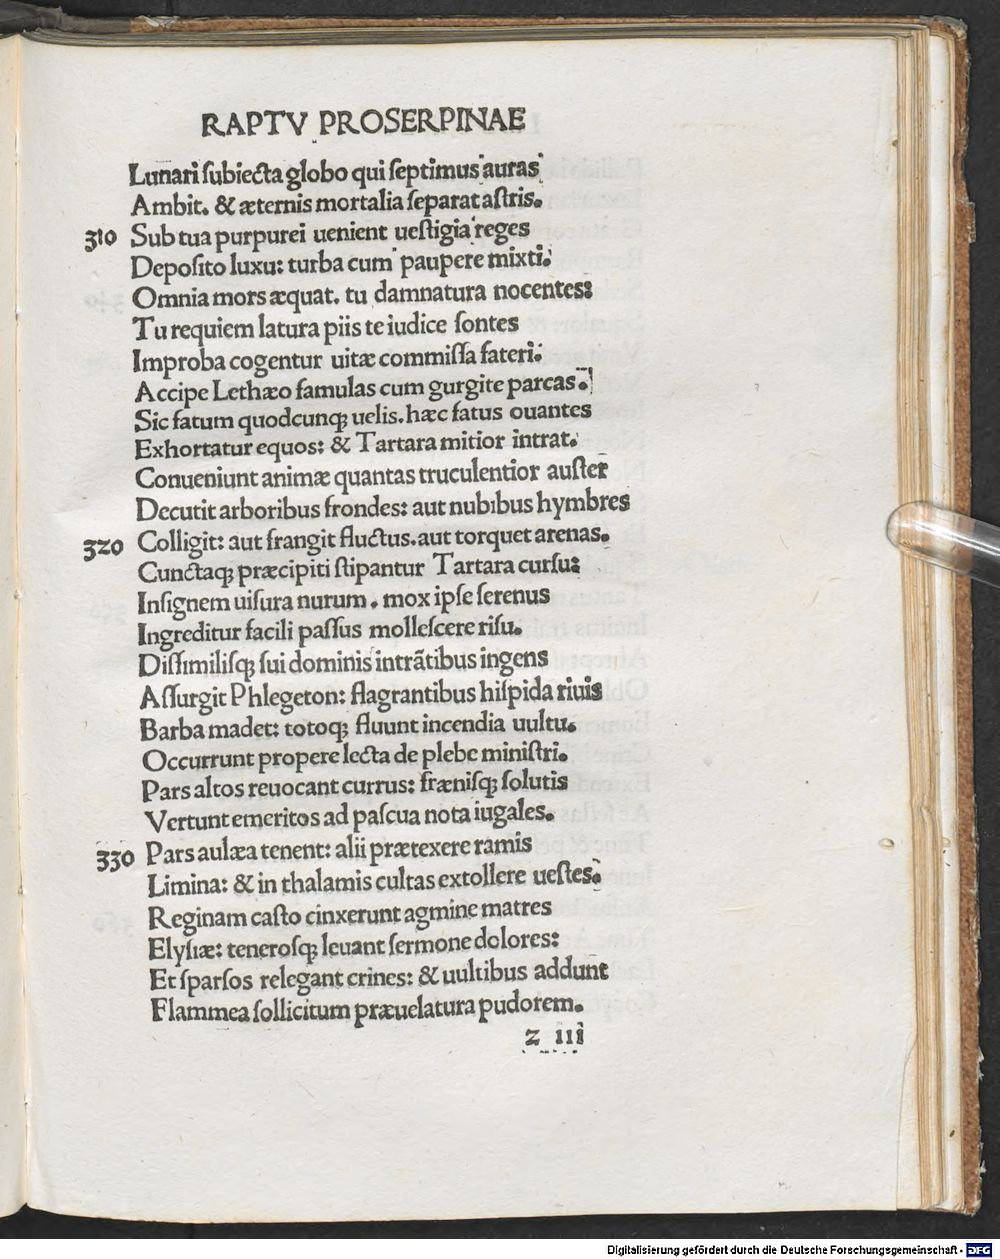 RAPTV PROSERPINAE
Lunari ſubiecta globo qui ſeptimus auras
Ambit. & æternis mortalia ſeparat aſtris.
310 Sub tua purpurei uenient ueſtigia reges
Depoſito luxu: turba cum paupere mixti.
Omnia mors æquat. tu damnatura nocentes:
Tu requiem latura piis te iudice ſontes
Improba cogentur uitæ commiſſa fateri.
Accipe Lethæo famulas cum gurgite parcas.
Sic fatum quodcunqꝫ uelis. hæc fatus ouantes
Exhortatur equos: & Tartara mitior intrat.
Conueniunt animæ quantas truculentior auſter
Decutit arboribus frondes: aut nubibus hymbres
320 Colligit: aut frangit fluctus. aut torquet arenas.
Cunctaqꝫ præcipiti ſtipantur Tartara curſu:
Inſignem uiſura nurum. mox ipſe ſerenus
Ingreditur facili paſſus molleſcere riſu.
Diſſimiliſqꝫ ſui dominis intrātibus ingens
Aſſurgit Phlegeton: flagrantibus hiſpida riuis
Barba madet: totoqꝫ fluunt incendia uultu.
Occurrunt propere lecta de plebe miniſtri.
Pars altos reuocant currus: fræniſqꝫ ſolutis
Vertunt emeritos ad paſcua nota iugales.
330 Pars aulæa tenent: alii prætexere ramis
Limina: & in thalamis cultas extollere ueſtes.
Reginam caſto cinxerunt agmine matres
Elyſiæ: teneroſqꝫ leuant ſermone dolores:
Et ſparſos relegant crines: & uultibus addunt
Flammea ſollicitum præuelatura pudorem.
z iii
Digitalisierung gefördert durch die Deutsche Forschungsgemeinschaft - DFG